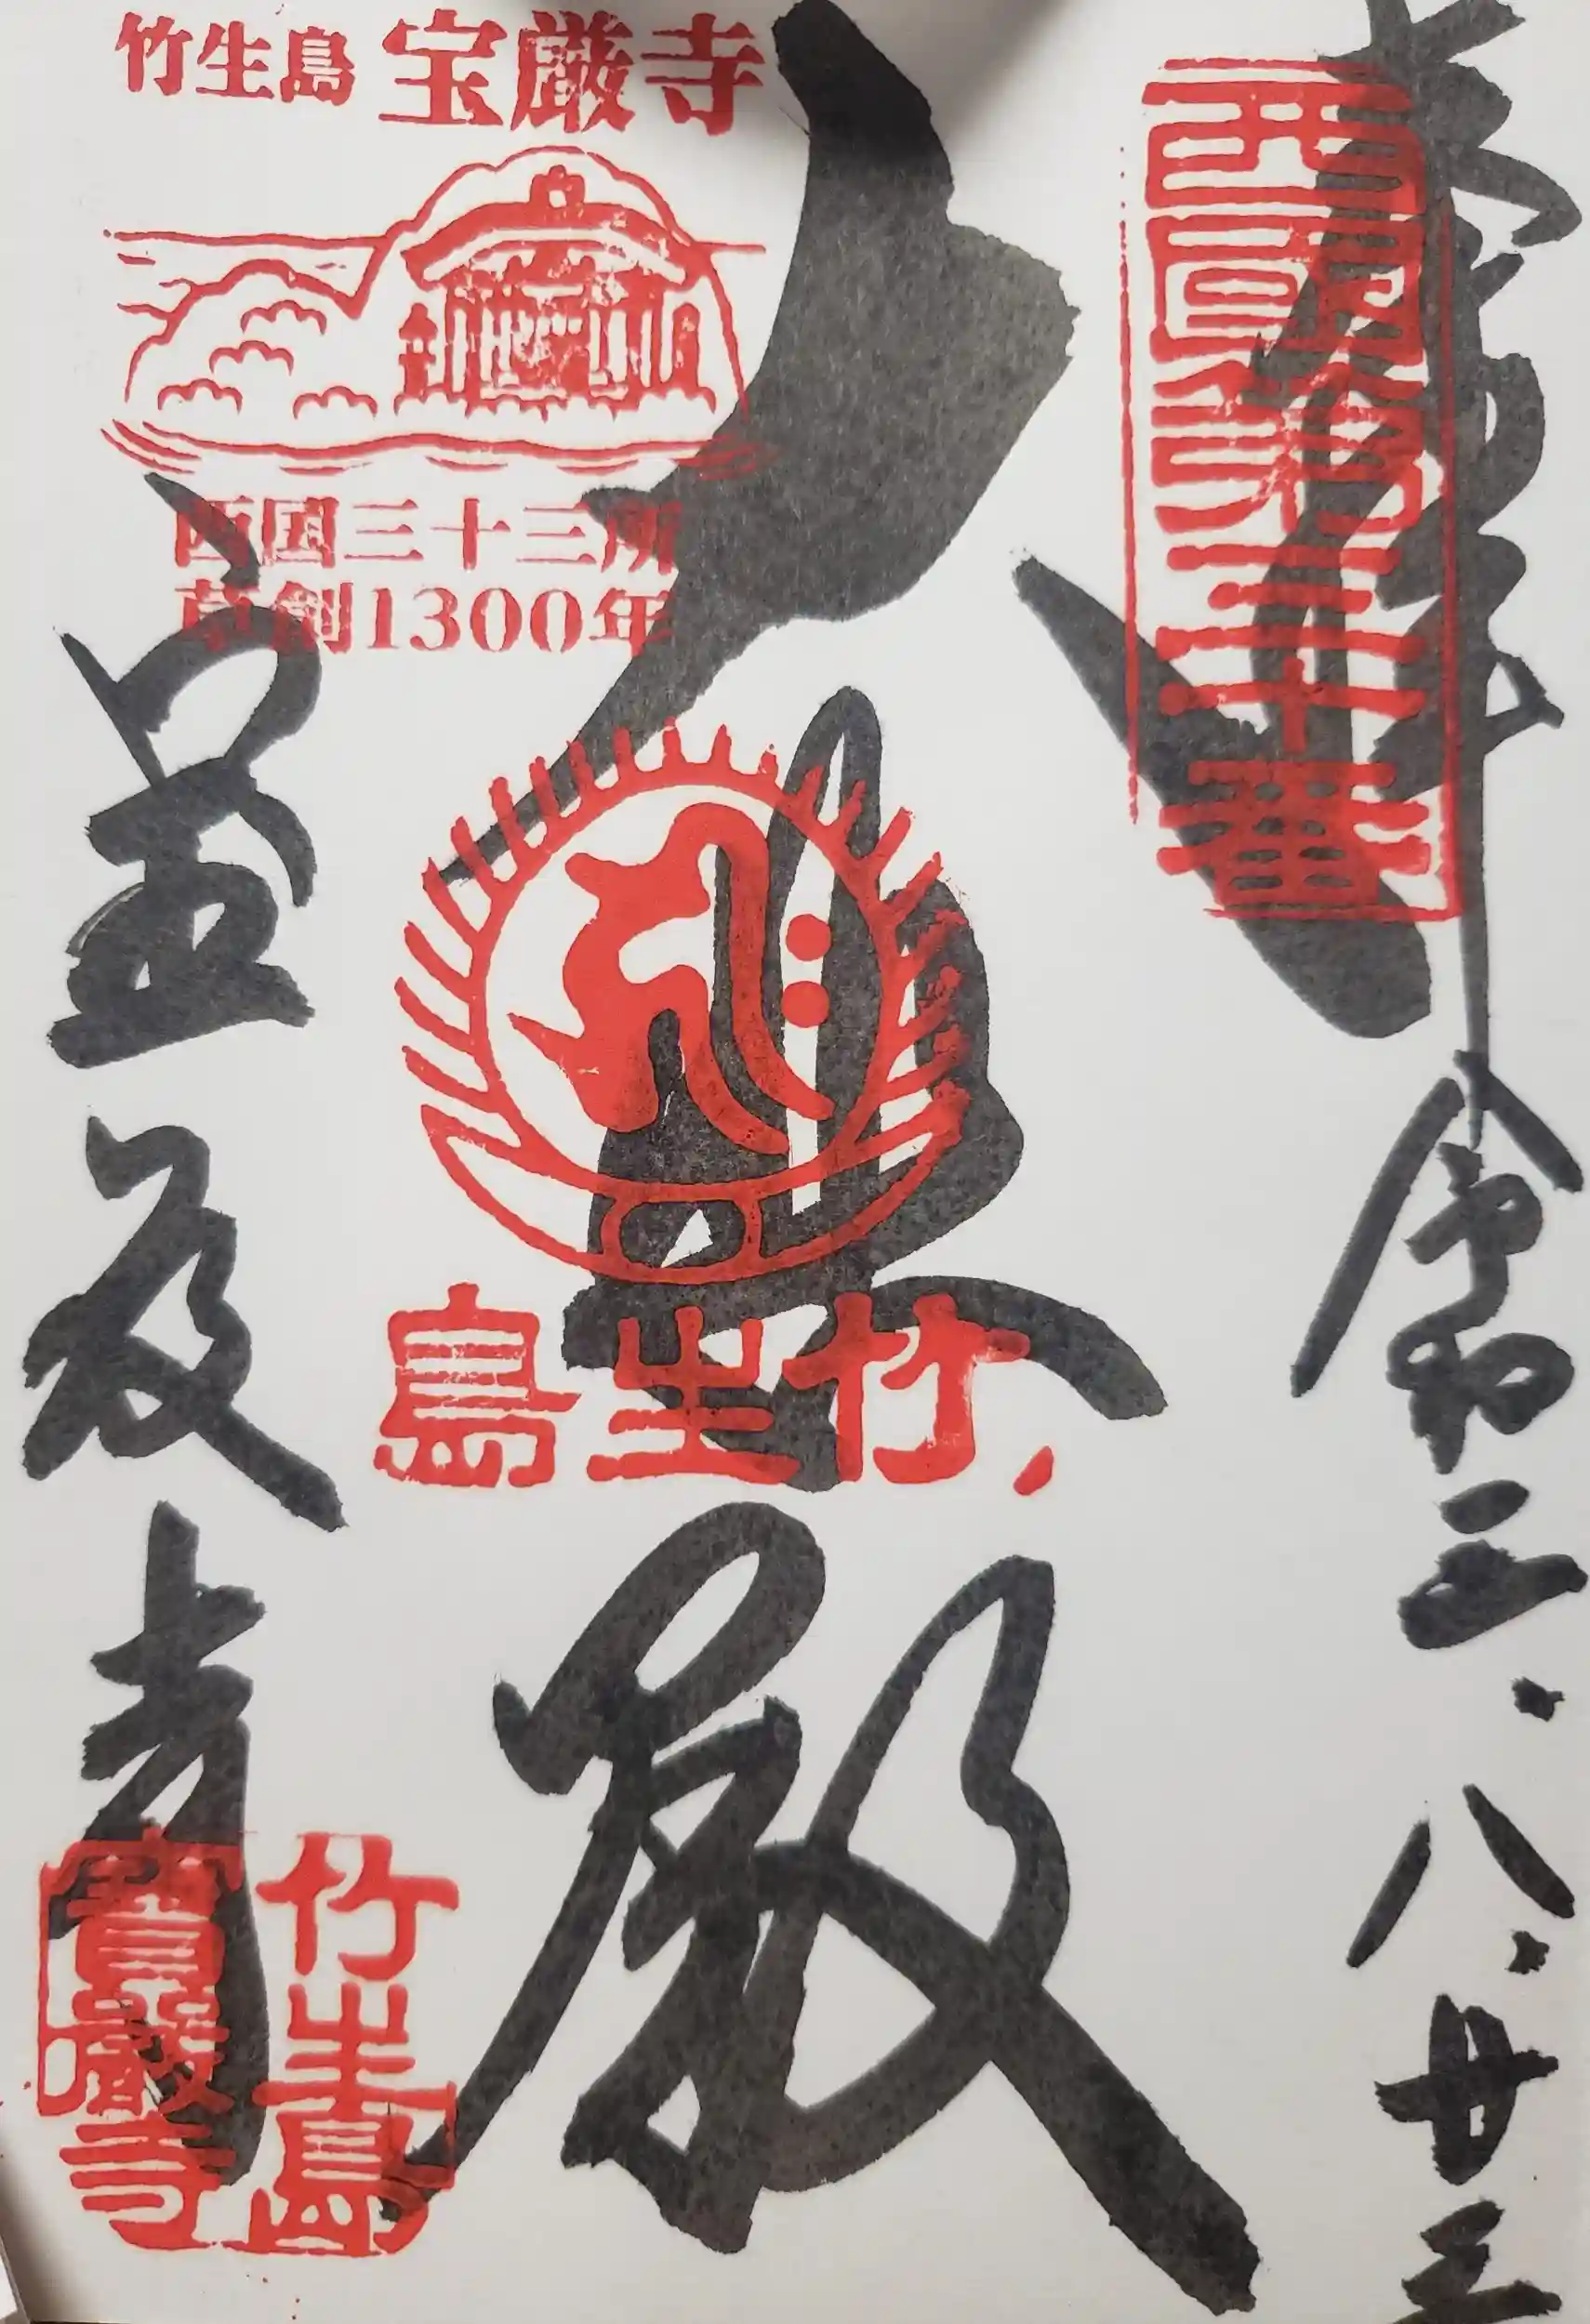 奉拝 令和三.八.廿三
西國第三十番
大悲殿
竹生島 宝厳寺
西国三十三所
草創1300年
竹生島
宝厳寺
竹生島
寶嚴寺